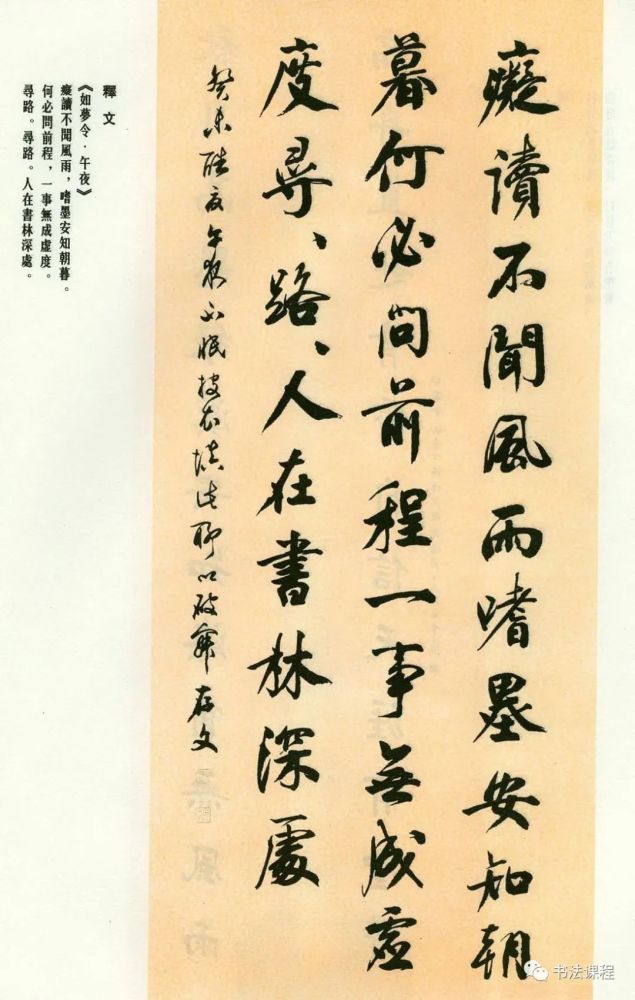 癡讀不聞風雨嗜墨安知朝
暮何必問前程一事無成虛
度尋、路、人在書林深處
癸未酷夏午夜不眠披衣填此聊以破寂 存文
釋文
《如夢令·午夜》
癡讀不聞風雨，嗜墨安知朝暮。
何必問前程，一事無成虛度。
尋路。尋路。人在書林深處。
书法课程